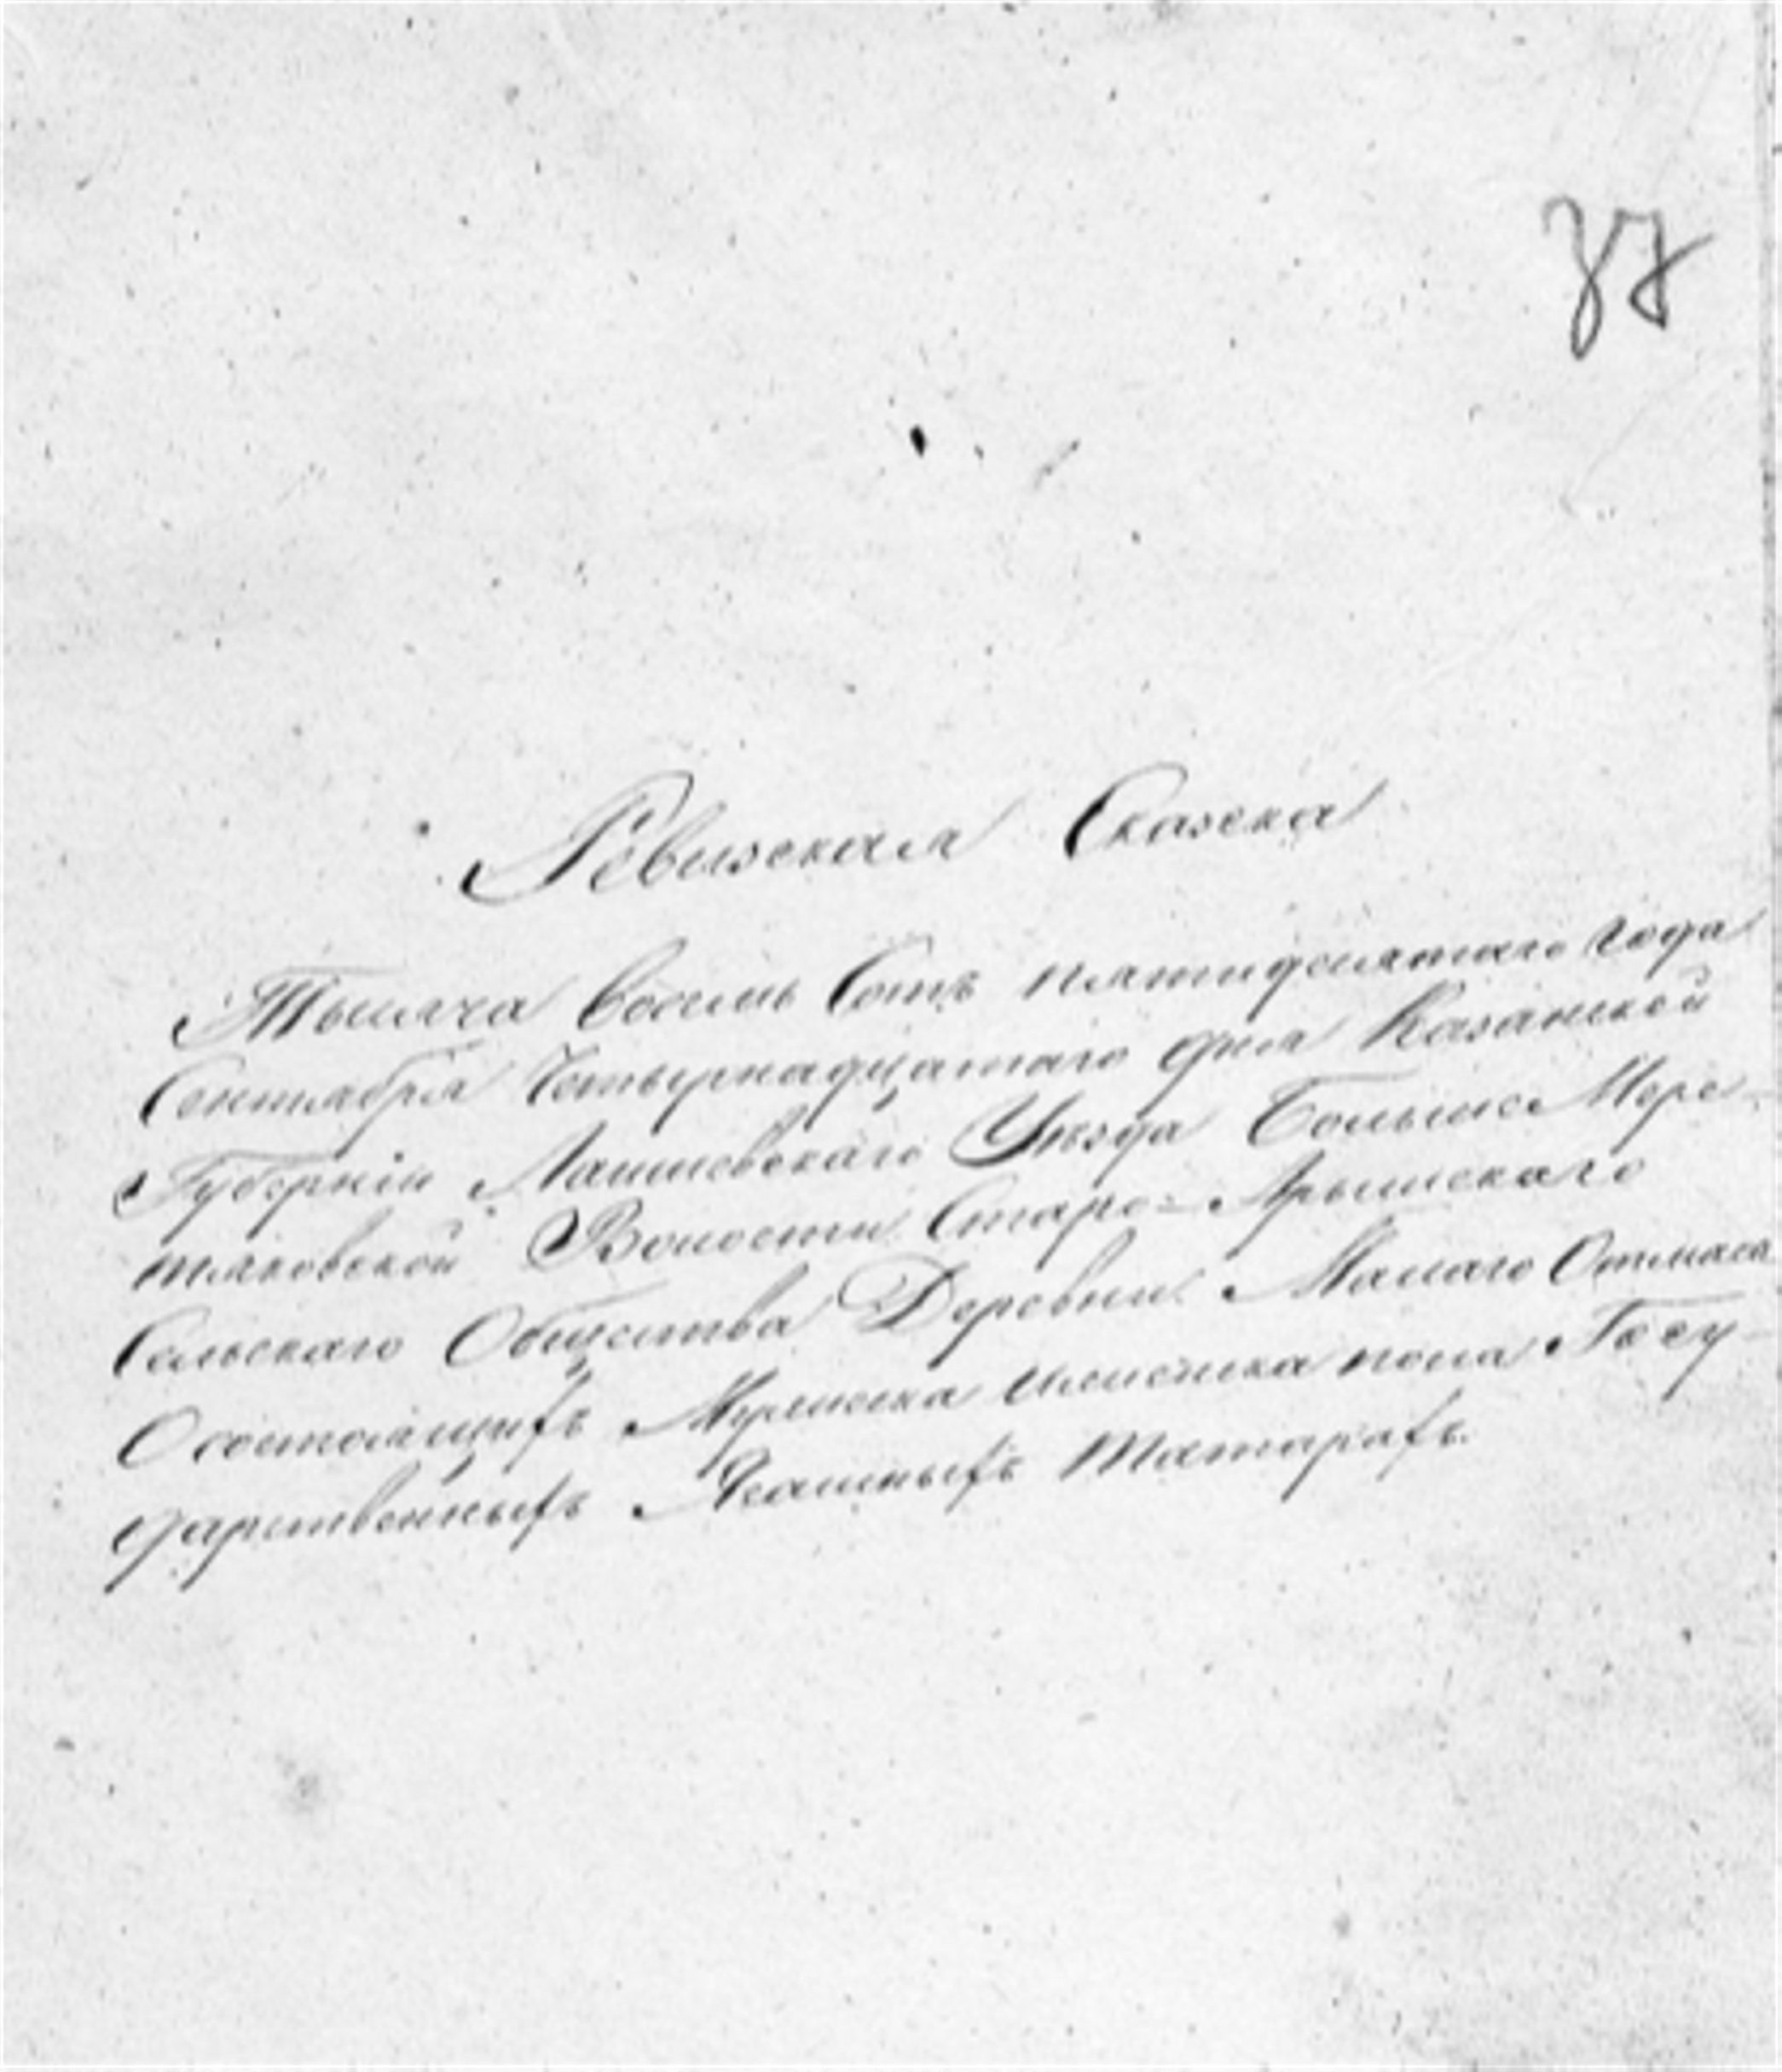 37
Ревизская Сказка
Тысяча восемь сотъ пятидесятаго года
Сентября Четырнадцатаго дня Казанской
Губерніи Лаишевскаго Уѣзда Больше Мере-
тяковской Волости Старо-Арышскаго
Сельскаго Общества Деревни Малаго Отмаса
О состоящихъ Мужеска и женска пола Госу-
дарственныхъ Ясашныхъ Татарахъ.